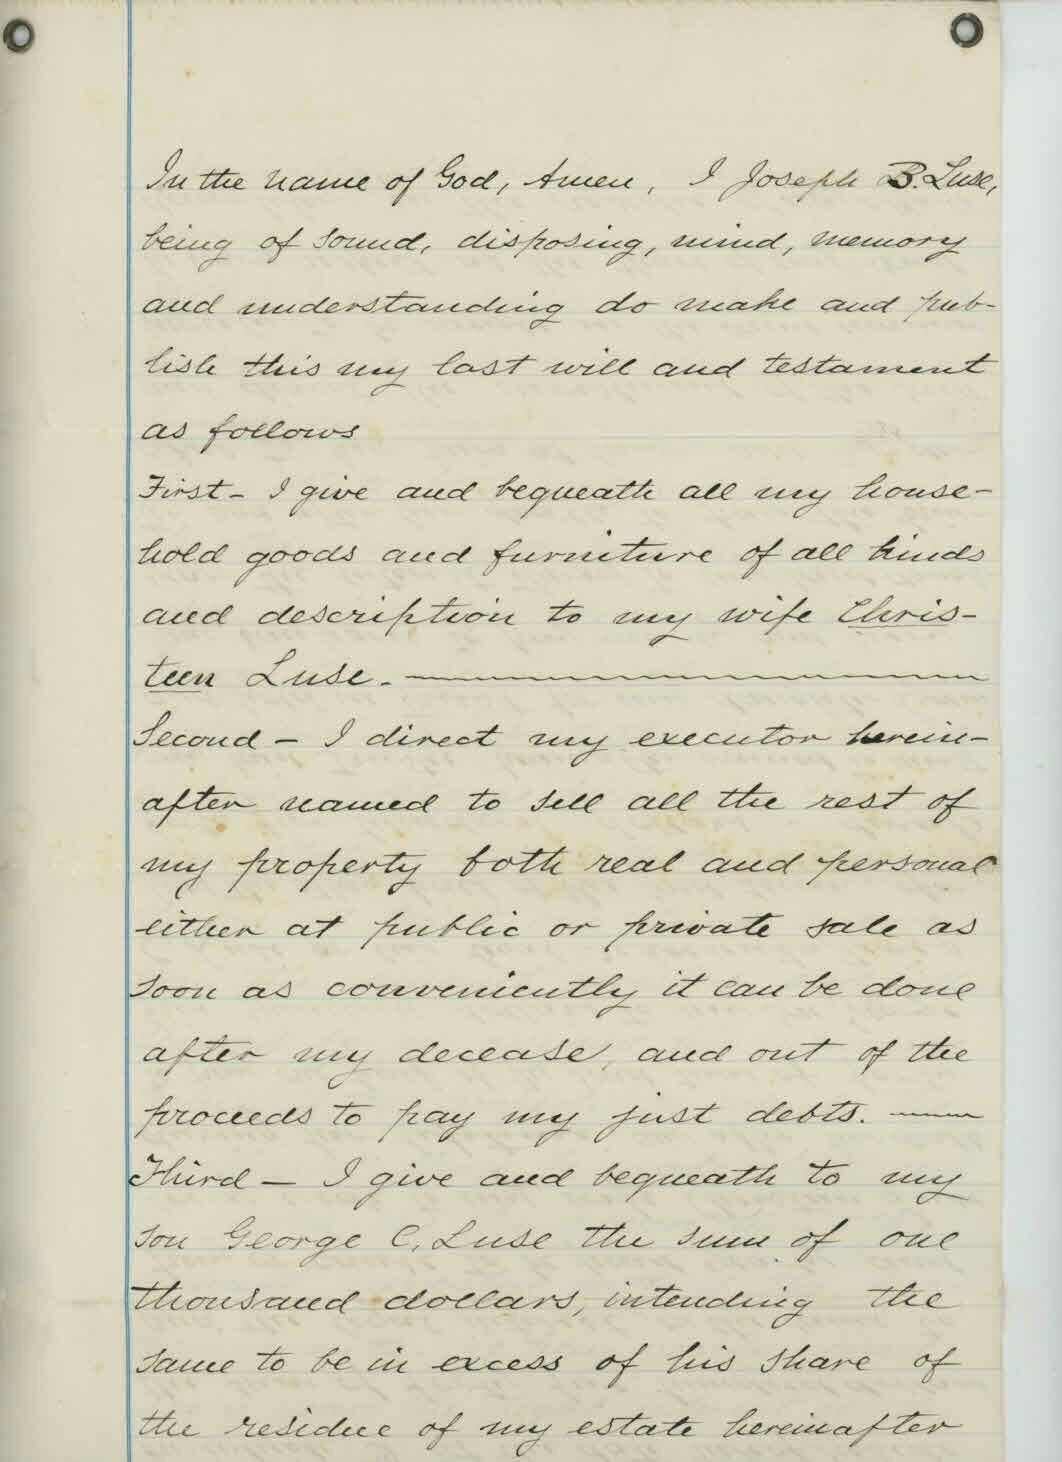 In the name of God, Amen, I Joseph B. Luse,
being of sound, disposing, mind, memory
and understanding do make and pub-
lish this my last will and testament
as follows
First - I give and bequeath all my house-
hold goods and furniture of all kinds
and description to my wife Chris-
teen Luse.
Second - I direct my executor herein-
after named to sell all the rest of
my property both real and personal
either at public or private sale as
soon as conveniently it can be done
after my decease, and out of the
proceeds to pay my just debts.
Third - I give and bequeath to my
son George C. Luse the sum of one
thousand dollars, intending the
same to be in excess of his share of
the residue of my estate hereinafter